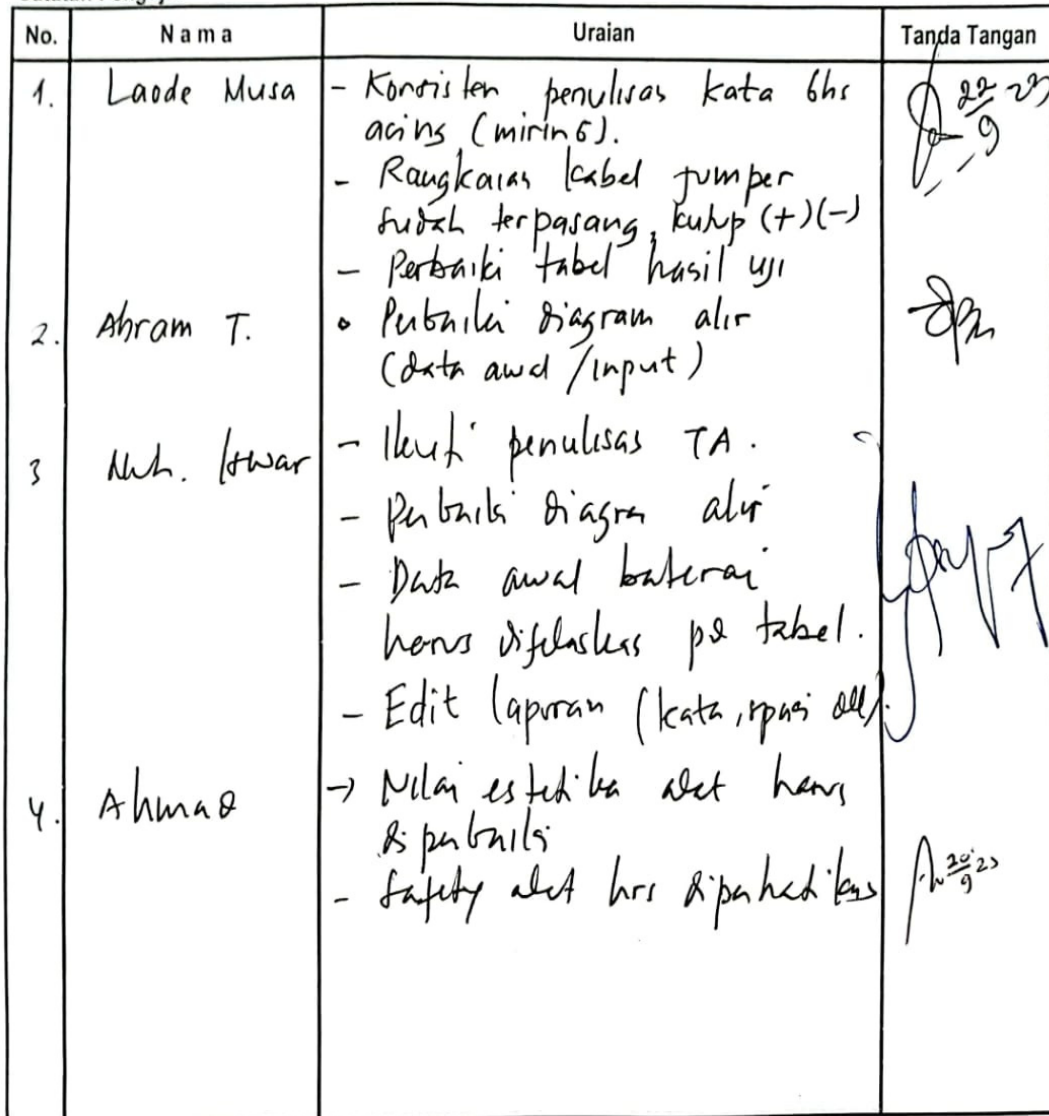 No. Nama Uraian Tanda Tangan
1. Laode Musa - Konsisten penulisan kata bhs
asing (miring).
- Rangkaian kabel jumper
sudah terpasang, kutup (+)(-)
- Perbaiki tabel hasil uji
22/9 23
2. Abram T. • Perbaiki diagram alir
(data awal / input)
3 Muh. - Ikuti penulisan TA.
- Perbaiki diagram alir
- Data awal baterai
harus dijelaskan pd tabel.
- Edit laporan (kata, spasi dll).
4. Ahmad → Nilai estetika alat harus
diperbaiki
- Safety alat hrs diperhatikan
20/9 23